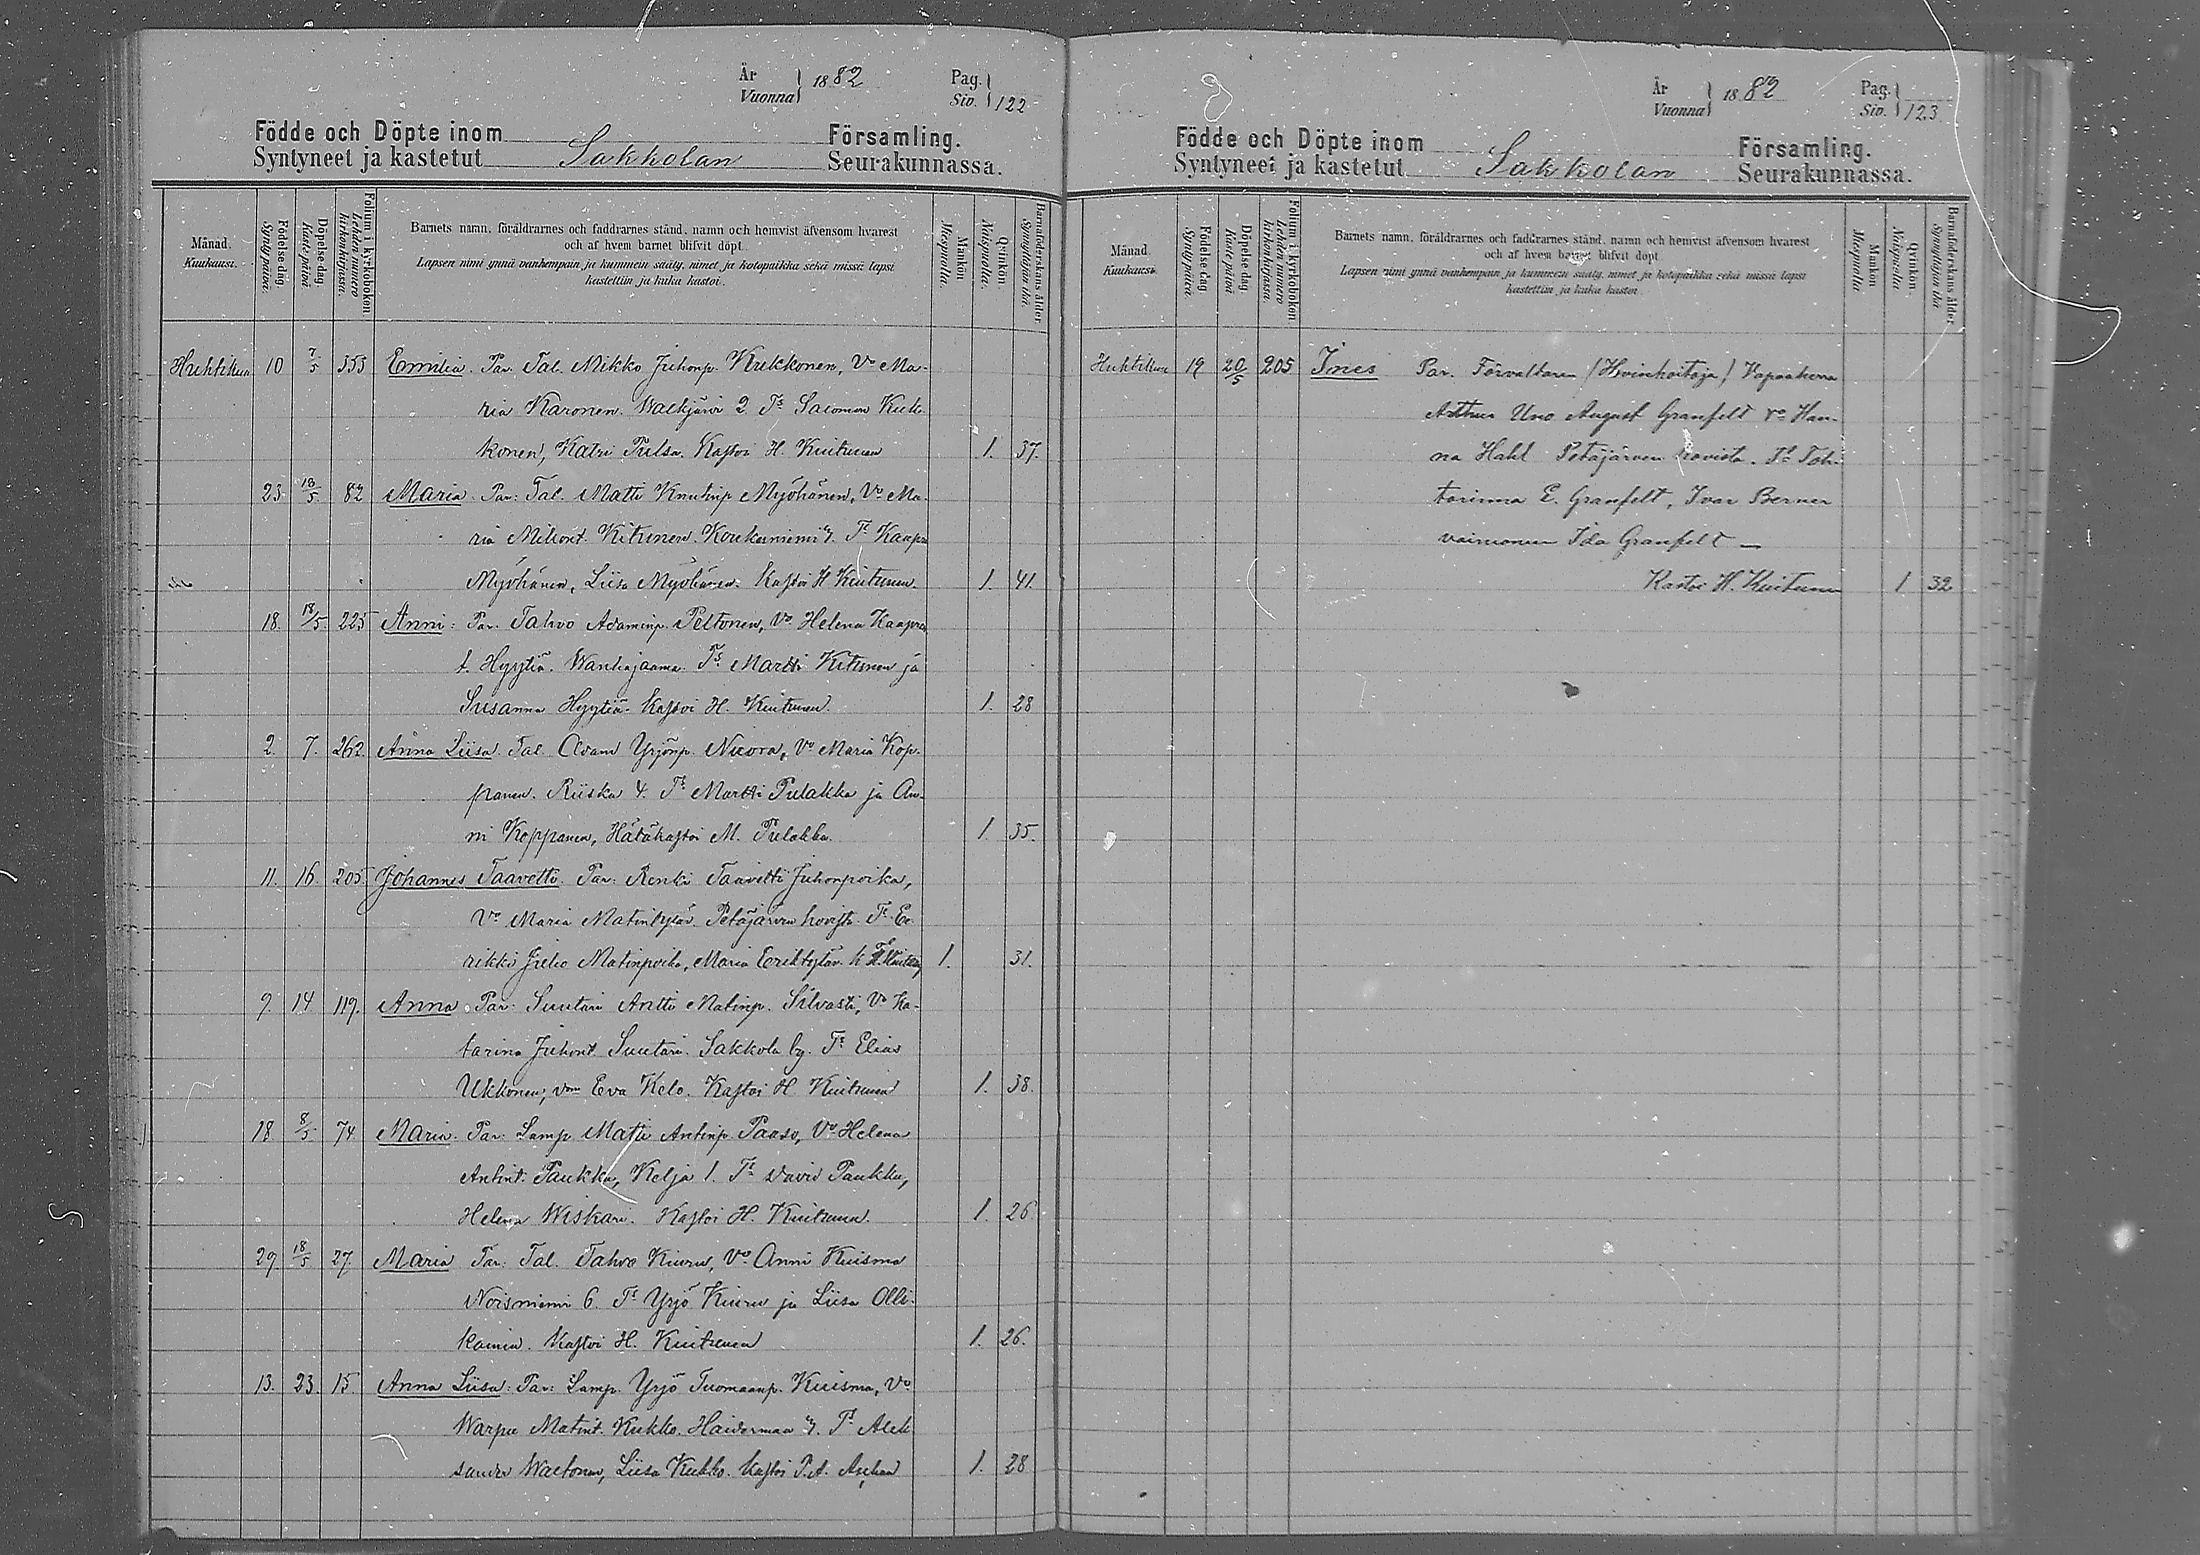 År
Vuonna } 1882
Pag.
Siv. } 122
Födde och Döpte inom Församling.
Syntyneet ja kastetut Sakkolan Seurakunnassa.
Månad.
Kuukausi.
Födelse-dag.
Syntypäivä.
Döpelse-dag.
Kastepäivä
Folium i kyrkoboken
Lehden numero kirkonkirjassa.
Barnets namn, föräldrarnes och faddrarnes stånd, namn och hemvist äfvensom hvarest
och af hvem barnet blifvit döpt.
Lapsen nimi ynnä vanhempain ja kummein sääty, nimet ja kotopaikka sekä missä lapsi
kastettiin ja kuka kastoi.
Mankön
Miespuolia.
Qvinkön
Naispuolia.
Barnaföderskans ålder
Synnyttäjän ikä.
Huhtikuu 10 7/5 353 Emilia. Par. Tal. Mikko Juhonp. Kukkonen, Vo Ma-
ria Karonen. Walkjärvi 2. Ts Salomon Kuk-
konen, Katri Pulsa. Kastoi H. Kuitunen 1. 37.
23 18/5 82 Maria. Par: Tal. Matti Knutinp Myöhänen, Vo Ma-
ria Mikont. Kitunen. Koukunniemi 7. Ts Kaapro
Myöhänen, Liisa Myöhänen. Kastoi H Kuitunen. 1. 41.
18. 18/5 225 Anni: Par. Tahvo Adaminp. Peltonen, Vo Helena Kaapro
t. Hyytiä. Wanhajaama. Ts Martti Kitunen ja
Susanna Hyytiä. Kastoi H. Kuitunen. 1. 28
2. 7. 262. Anna Liisa. Tal. Adam Yrjönp. Nuora, Vo Maria Kop-
panen. Riiska 4. Ts Martti Pulakka ja An-
ni Koppanen, Hätäkastoi M. Pulakka. 1. 35.
11. 16. 205 Johannes Taavetti. Par: Renki Taavetti Juhonpoika,
Vo Maria Matintytär. Petäjärven hovista. Ts Ee-
rikki Juho Matinpoika, Maria Eeriktytär. K H. Kuitunen 1. 31.
9. 14 119. Anna. Par: Suutari Antti Matinp. Silvasti, Vo Ka-
tarina Juhont Suutari. Sakkola by. Ts Elias
Ukkonen, vm Eva Kelo. Kastoi H Kuitunen 1. 38.
18 8/5 74 Maria. Par: Lamp Matti Antinp. Paaso, Vo Helena
Antint. Paukku, Kelja 1. Ts David Paukku,
Helena Wiskari. Kastoi H. Kuitunen. 1. 26
29 18/5 27. Maria Par: Tal. Tahvo Kiuru, Vo Anni Kuisma
Noisniemi 6. Ts Yrjö Kiuru ja Liisa Olli-
kainen. Kastoi H. Kuitunen 1. 26.
13. 23. 15 Anna Liisa: Par: Lamp. Yrjö Tuomaanp. Kuisma, Vo
Warpu Matint. Kukko. Haitermaa 7. Ts Alek
sander Waltonen, Liisa Kukko. Kastoi P.A. 1. 28
År
Vuonna } 1882
Pag.
Siv. } 123
Födde och Döpte inom Församling.
Syntyneet ja kastetut Sakkolan Seurakunnassa.
Månad.
Kuukausi.
Födelse-dag
Syntypäivä.
Döpelse-dag
Kastepäivä
Folium i kyrkoboken
Lehden numero kirkonkirjassa.
Barnets namn, föräldrarnes och faddrarnes stånd, namn och hemvist äfvensom hvarest
och af hvem barnet blifvit döpt
Lapsen nimi ynnä vanhempain ja kummein sääty, nimet ja kotopaikka sekä missä lapsi
kastettiin ja kuka kastoi.
Mankön
Miespuolia
Qvinkön
Naispuolia
Barnaföderskans ålder
Synnyttäjän ikä
Huhtikuu 19 20/5 205 Ines Par. Förvaltaren (Hovinhoitaja) Vapaaherra
Arthur Uno August Granfelt Vo Han-
na Hahl Petäjärven hovista. Ts Toh-
torinna E. Granfelt, Ivar Berner
vaimonen Ida Granfelt —
Kastoi H. Kuitunen 1 32